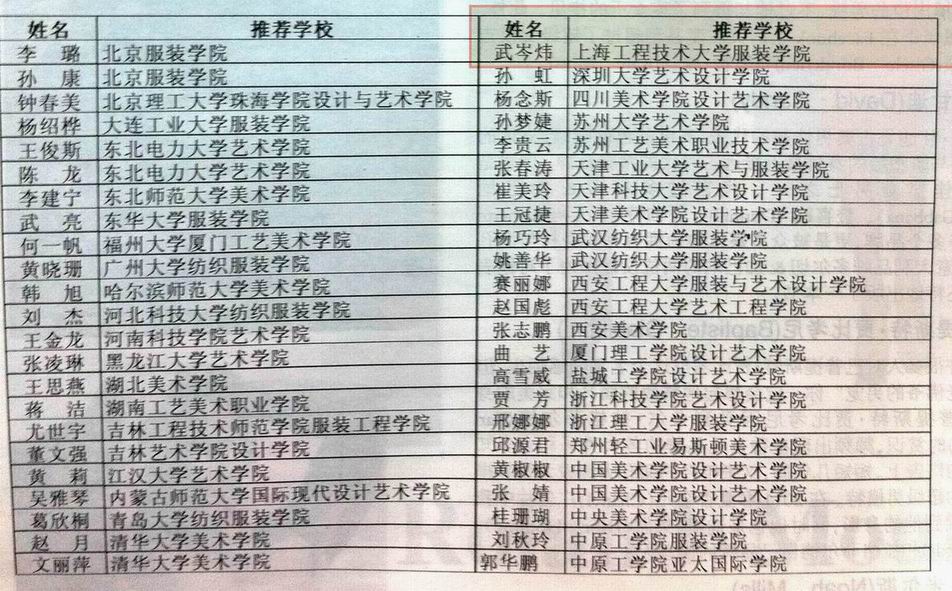 姓名 推荐学校 姓名 推荐学校
李 璐 北京服装学院 武岑炜 上海工程技术大学服装学院
孙 康 北京服装学院 孙 虹 深圳大学艺术设计学院
钟春美 北京理工大学珠海学院设计与艺术学院 杨念斯 四川美术学院设计艺术学院
杨绍桦 大连工业大学服装学院 孙梦婕 苏州大学艺术学院
王俊斯 东北电力大学艺术学院 李贵云 苏州工艺美术职业技术学院
陈 龙 东北电力大学艺术学院 张春涛 天津工业大学艺术与服装学院
李建宁 东北师范大学美术学院 崔美玲 天津科技大学艺术设计学院
武 亮 东华大学服装学院 王冠捷 天津美术学院设计艺术学院
何一帆 福州大学厦门工艺美术学院 杨巧玲 武汉纺织大学服装学院
黄晓珊 广州大学纺织服装学院 姚善华 武汉纺织大学服装学院
韩 旭 哈尔滨师范大学美术学院 赛丽娜 西安工程大学服装与艺术设计学院
刘 杰 河北科技大学纺织服装学院 赵国彪 西安工程大学艺术工程学院
王金龙 河南科技学院艺术学院 张志鹏 西安美术学院
张凌琳 黑龙江大学艺术学院 曲 艺 厦门理工学院设计艺术学院
王思燕 湖北美术学院 高雪威 盐城工学院设计艺术学院
蒋 洁 湖南工艺美术职业学院 贾 芳 浙江科技学院艺术设计学院
尤世宇 吉林工程技术师范学院服装工程学院 邢娜娜 浙江理工大学服装学院
董文强 吉林艺术学院设计学院 邱源君 郑州轻工业易斯顿美术学院
黄 莉 江汉大学艺术学院 黄椒椒 中国美术学院设计艺术学院
吴雅琴 内蒙古师范大学国际现代设计艺术学院 张 婧 中国美术学院设计艺术学院
葛欣桐 青岛大学纺织服装学院 桂珊瑚 中央美术学院设计学院
赵 月 清华大学美术学院 刘秋玲 中原工学院服装学院
文丽萍 清华大学美术学院 郭华鹏 中原工学院亚太国际学院